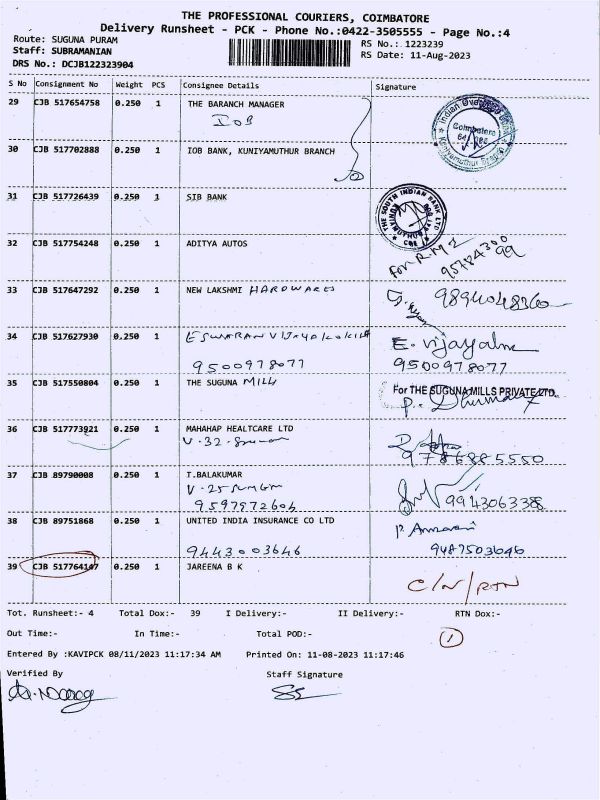 THE PROFESSIONAL COURIERS, COIMBATORE
Delivery Runsheet - PCK - Phone No.:0422-3505555 - Page No.:4
Route: SUGUNA PURAM
RS No.: 1223239
Staff: SUBRAMANIAN
RS Date: 11-Aug-2023
DRS No.: DCJB122323904
S No Consignment No Weight PCS Consignee Details Signature
29 CJB 517654758 0.250 1 THE BARANCH MANAGER
IOB
30 CJB 517702888 0.250 1 IOB BANK, KUNIYAMUTHUR BRANCH
Indian Overseas Bank
Coimbatore
Kuniyamuthur Branch
31 CJB 517726439 0.250 1 SIB BANK
THE SOUTH INDIAN BANK LTD
32 CJB 517754248 0.250 1 ADITYA AUTOS
33 CJB 517647292 0.250 1 NEW LAKSHMI HARDWARES 9894048360
34 CJB 517627930 0.250 1 ESWARAN VIJAYAKOKILA E. vijayalm
9500978077 9500978077
35 CJB 517550804 0.250 1 THE SUGUNA MILL For THE SUGUNA MILLS PRIVATE LTD.
36 CJB 517773921 0.250 1 MAHAHAP HEALTCARE LTD
9786885550
37 CJB 89790008 0.250 1 T.BALAKUMAR
9597972604 9943063385
38 CJB 89751868 0.250 1 UNITED INDIA INSURANCE CO LTD
9443003646 9487503646
39 CJB 517764147 0.250 1 JAREENA B K C/N/RTN
Tot. Runsheet:- 4 Total Dox:- 39 I Delivery:- II Delivery:- RTN Dox:-
1
Out Time:- In Time:- Total POD:-
Entered By :KAVIPCK 08/11/2023 11:17:34 AM Printed On: 11-08-2023 11:17:46
Verified By Staff Signature